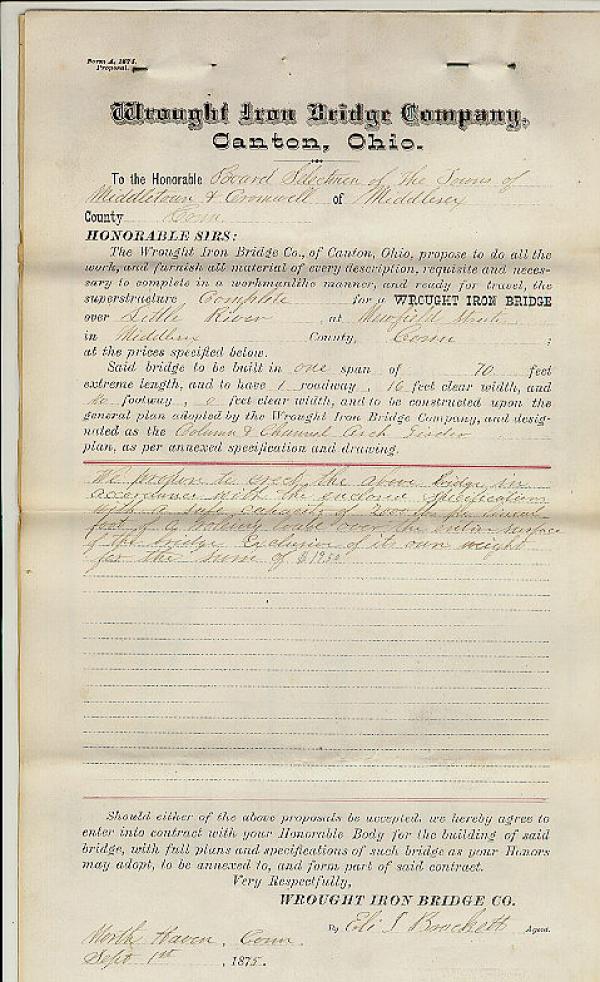 Form A, 1874.
Proposal.
Wrought Iron Bridge Company,
Canton, Ohio.
To the Honorable Board Selectmen of The Towns of
Middletown & Cromwell of Middlesex
County Conn
HONORABLE SIRS:
The Wrought Iron Bridge Co., of Canton, Ohio, propose to do all the
work, and furnish all material of every description, requisite and neces-
sary to complete in a workmanlike manner, and ready for travel, the
superstructure Complete for a WROUGHT IRON BRIDGE
over Little River at Newfield Street
in Middlesex County, Conn ;
at the prices specified below.
Said bridge to be built in one span of 70 feet
extreme length, and to have 1 roadway, 16 feet clear width, and
No footway, 0 feet clear width, and to be constructed upon the
general plan adopted by the Wrought Iron Bridge Company, and desig-
nated as the Column & Channel Arch Girder
plan, as per annexed specification and drawing.
We propose to erect the above Bridge in
accordance with the enclosed specification
with a safe capacity of 2000 lbs per lineal
foot of a moving load over the entire surface
of the bridge Exclusive of its own weight
for the sum of $1950
Should either of the above proposals be accepted, we hereby agree to
enter into contract with your Honorable Body for the building of said
bridge, with full plans and specifications of such bridge as your Honors
may adopt, to be annexed to, and form part of said contract.
Very Respectfully,
WROUGHT IRON BRIDGE CO.
By Eli I Brockett Agent.
North Haven, Conn.
Sept 1st, 1875.